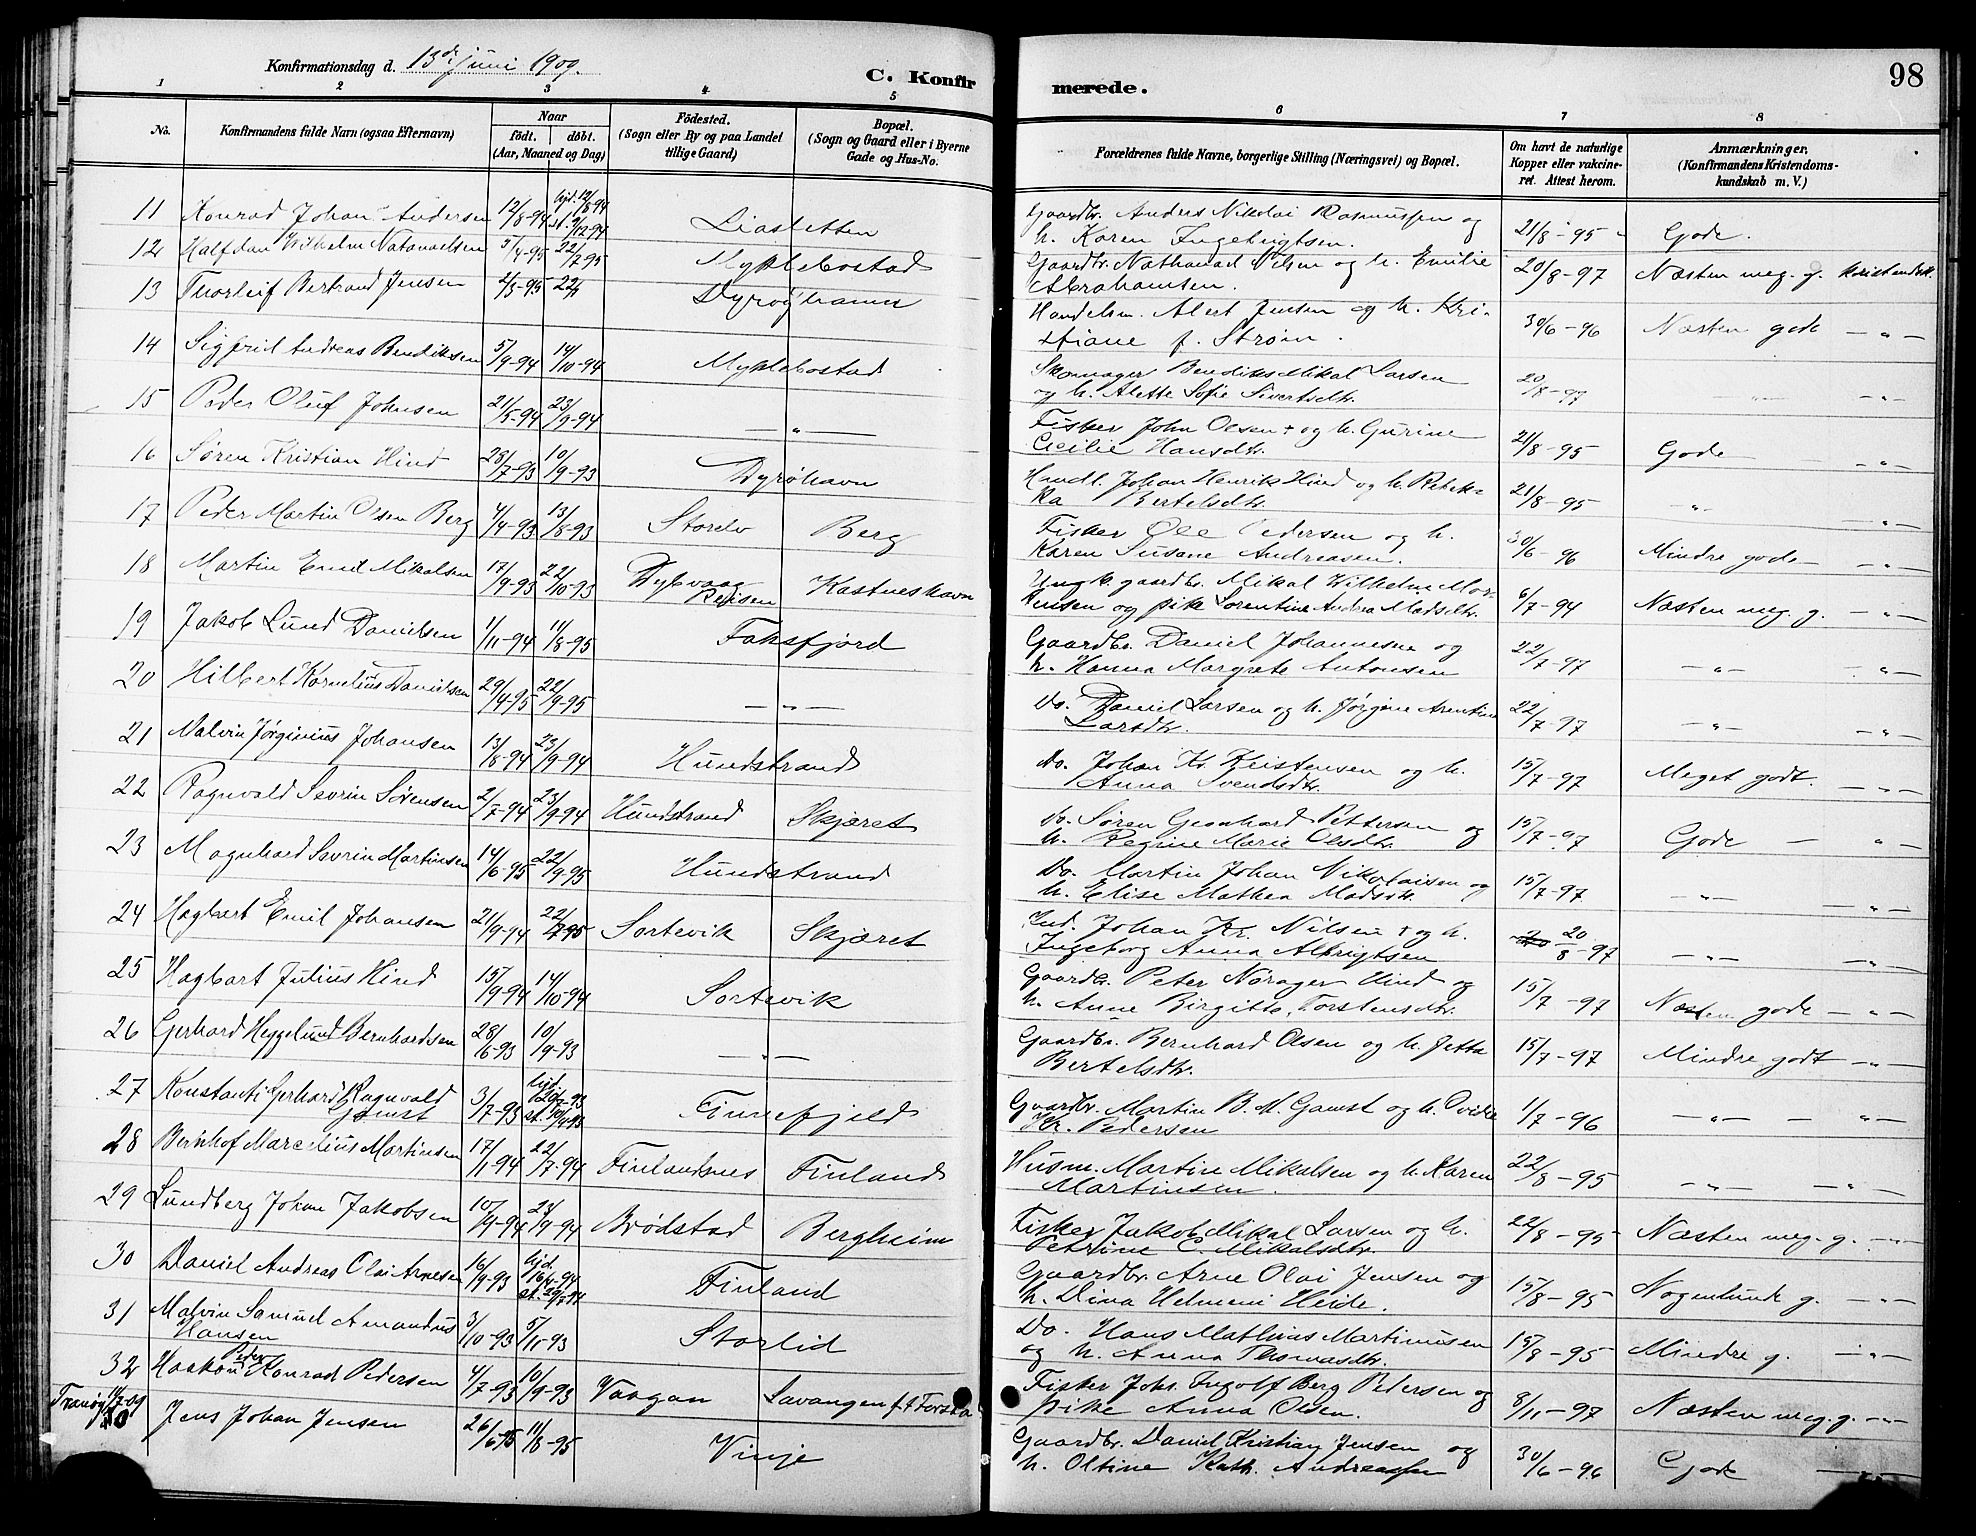 Konfirmationsdag d. 13de juni 1909.
C. Konfirmerede. 98
1 2 3 4 5 6 7 8
No. Konfirmandens fulde Navn (ogsaa Efternavn) Naar födt. döbt. (Aar, Maaned og Dag) Födested. (Sogn eller By og paa Landet tillige Gaard) Bopæl. (Sogn og Gaard eller i Byerne Gade og Hus-No. Forældrenes fulde Navne, borgerlige Stilling (Næringsvei) og Bopæl. Om havt de naturlige Kopper eller vakcineret. Attest herom. Anmærkninger. (Konfirmandens Kristendomskundskab m. V.)
11 Konrad Johan Andersen 12/8-94 hjd. 12/8 94 st. 2/12-94 Liasletten Gaardbr. Anders Nikolai Rasmussen og h. Karen Ingebrigtsen. 21/8-95 Gode.
12 Halfdan Wilhelm Natanaelsen 5/4-95 22/7-95 Myklebostad Gaardbr. Nathanael Nilsen og h. Emilie Abrahamsen. 20/8-97 Næsten meg. g. kristendsk.
13 Thorleif Bertrand Jensen 2/3-95 22/7 Dyröyhamn Handelsm. Alert Jensen og h. Kristiane f. Ström. 30/6-96 Næsten gode — „ —
14 Sigfrid Andreas Bendiksen 5/9-94 14/10-94 Myklebostad Skomager Bendiks Mikal Larsen og h. Alette Sofie Sivertsdtr. 20/8-97 — „ — — „ —
15 Peder Oluf Johnsen 21/5-94 23/9-94 — „ — Fisker John Olsen + og h. Gurine Cecilie Hansdtr. 21/8-95 Gode — „ —
16 Søren Kristian Hind 28/7-93 10/9-93 Dyröhavn Handl. Johan Henrik Hind og h. Rebekka Bertelsdtr. 21/8-95 — „ — — „ —
17 Peder Martin Olsen Berg 4/4-93 13/8-93 Storelv Berg Fisker Ole Pedersen og h. Karen Susane Andreasen. 30/6-96 Mindre gode — „ —
18 Martin Emil Mikalsen 17/9-93 22/10-93 Dybvaag Reisen Kastneshavn Ungk. gaardbr. Mikal Wilhelm Mortensen og pike Lorentine Andrea Madsdtr. 6/7-94 Næsten meg. g. — „ —
19 Jakob Lund Danielsen 1/11-94 11/8-95 Faksfjord Gaardbr. Daniel Johannesen og h. Hanna Margrete Antonsen 22/7-97 — „ — — „ —
20 Hilbert Kornelius Danielsen 29/4-95 22/9-95 — „ — Do. Daniel Larsen og h. Jørgine Arentine Larsdtr. 22/7-97 — „ — — „ —
21 Malvin Jørginius Johansen 13/8-94 23/9-94 Hundstrand Do. Johan Kr. Kristensen og h. Anna Svendsdtr. 15/7-97 Meget godt. — „ —
22 Ragnvald Sevrin Sørensen 2/7-94 23/9-94 Hundstrand Skjæret Do. Søren Gerhard Pettersen og h. Regine Marie Olsdtr. 15/7-97 Gode — „ —
23 Magnhard Sevrin Martinsen 14/6-95 22/9-95 Hundstrand Do. Martin Johan Nikolaisen og h. Elise Mathea Madsdtr. 15/7-97 — „ — — „ —
24 Hagbart Emil Johansen 21/9-94 22/7-95 Sortevik Skjæret Ind. Johan Kr. Nilsen + og h. Ingeborg Anna Albrigtsen 20/8-97 — „ — — „ —
25 Hagbart Julius Hind 15/9-94 14/10-94 Sortevik Gaardbr. Peter Nørager Hind og h. Anne Birgitte Torstensdtr. 15/7-97 Næsten gode — „ —
26 Gerhard Heggelund Bernhardsen 28/6-93 10/9-93 — „ — Gaardbr. Bernhard Olsen og h. Jetta Bertelsdtr. 15/7-97 Mindre godt — „ —
27 Konstanti Gerhard Ragnvald Gamst 3/7-93 hjd. st. 10/9 93 Finnefjeld Gaardbr. Martin B. M. Gamst og h. Ovidie Kr. Pedersen 1/7-96 — „ — — „ —
28 Bernhof Marcelius Martinsen 17/1-94 22/7-94 Finlandnes Finland Husm. Martin Mikalsen og h. Karen Martinsen. 22/8-95 — „ — — „ —
29 Lundberg Johan Jakobsen 10/9-94 23/9-94 Brødstad Bergheim Fisker Jakob Mikal Larsen og h. Petrine E. Mikalsdtr. 22/8-95 Næsten meg. g. — „ —
30 Daniel Andreas Olai Arnesen 16/9-93 hjd. 16/4-94 st. 22/7-94 Finland Gaardbr. Arne Olai Jensen og h. Dina Helmeni Heide. 15/8-95 Nogenlunde g. — „ —
31 Malvin Samuel Amandus Hansen 3/10-93 5/11-93 Storlid Do. Hans Mathias Martinusen og h. Anna Thomasdtr. 15/8-95 Mindre g. — „ —
32 Haakon Peder Konrad Pedersen 4/7-93 10/9-93 Vaagan Lavangen Fisker Johs. Ingolf Berg Pedersen og pike Anna Olsen. 8/11-97 Næsten meg. g. — „ —
Tranöy 11/7-09 Jens Johan Jensen 26/6 95 11/8-95 Vinje Gaardbr. Daniel Kristian Jensen og h. Oltine Kath. Andreassen 30/6-96 Gode — „ —